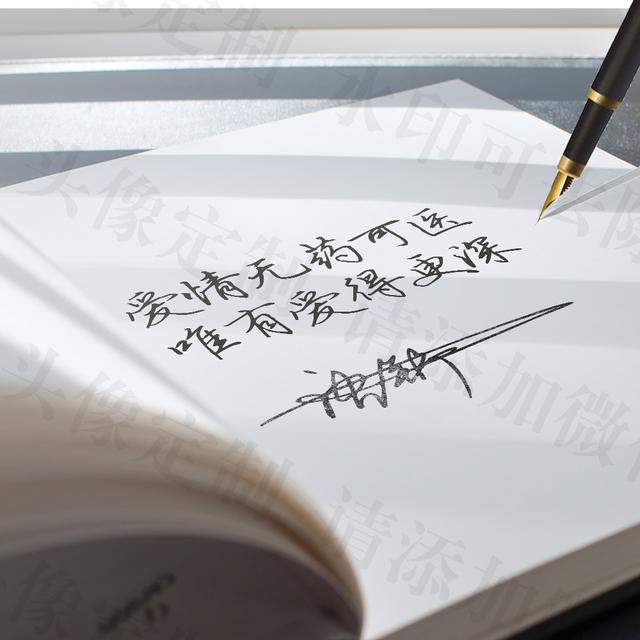 头像定制 水印可去除
爱情无药可医
唯有爱得更深
头像定制 请添加微信
头像定制 请添加